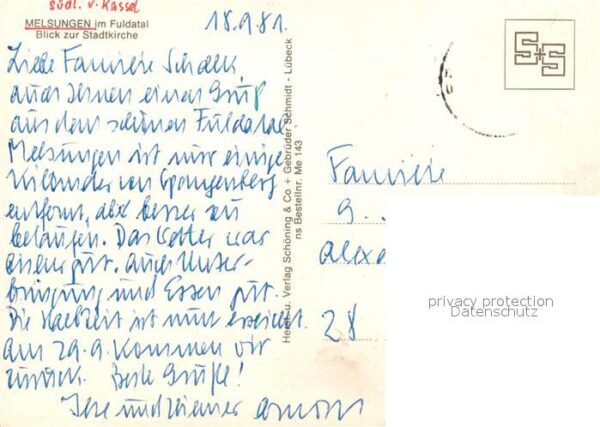 südl. v. Kassel
MELSUNGEN im Fuldatal
Blick zur Stadtkirche
18.9.81.
Liebe Familie Schalk
auch Ihnen einen Gruß
aus dem schönen Fuldatal.
Melsungen ist nur einige
Kilometer von Spangenberg
entfernt, aber besser zu
belaufen. Das Wetter war
bisher gut. Auch Unter-
bringung und Essen gut.
Die Halbzeit ist nun erreicht.
am 29.9. kommen wir
zurück. Beste Grüße!
Ihre
Herst. u. Verlag Schöning & Co + Gebrüder Schmidt - Lübeck
ns Bestellnr. Me 143
S+S
Familie
G..
Alexa
28
privacy protection
Datenschutz